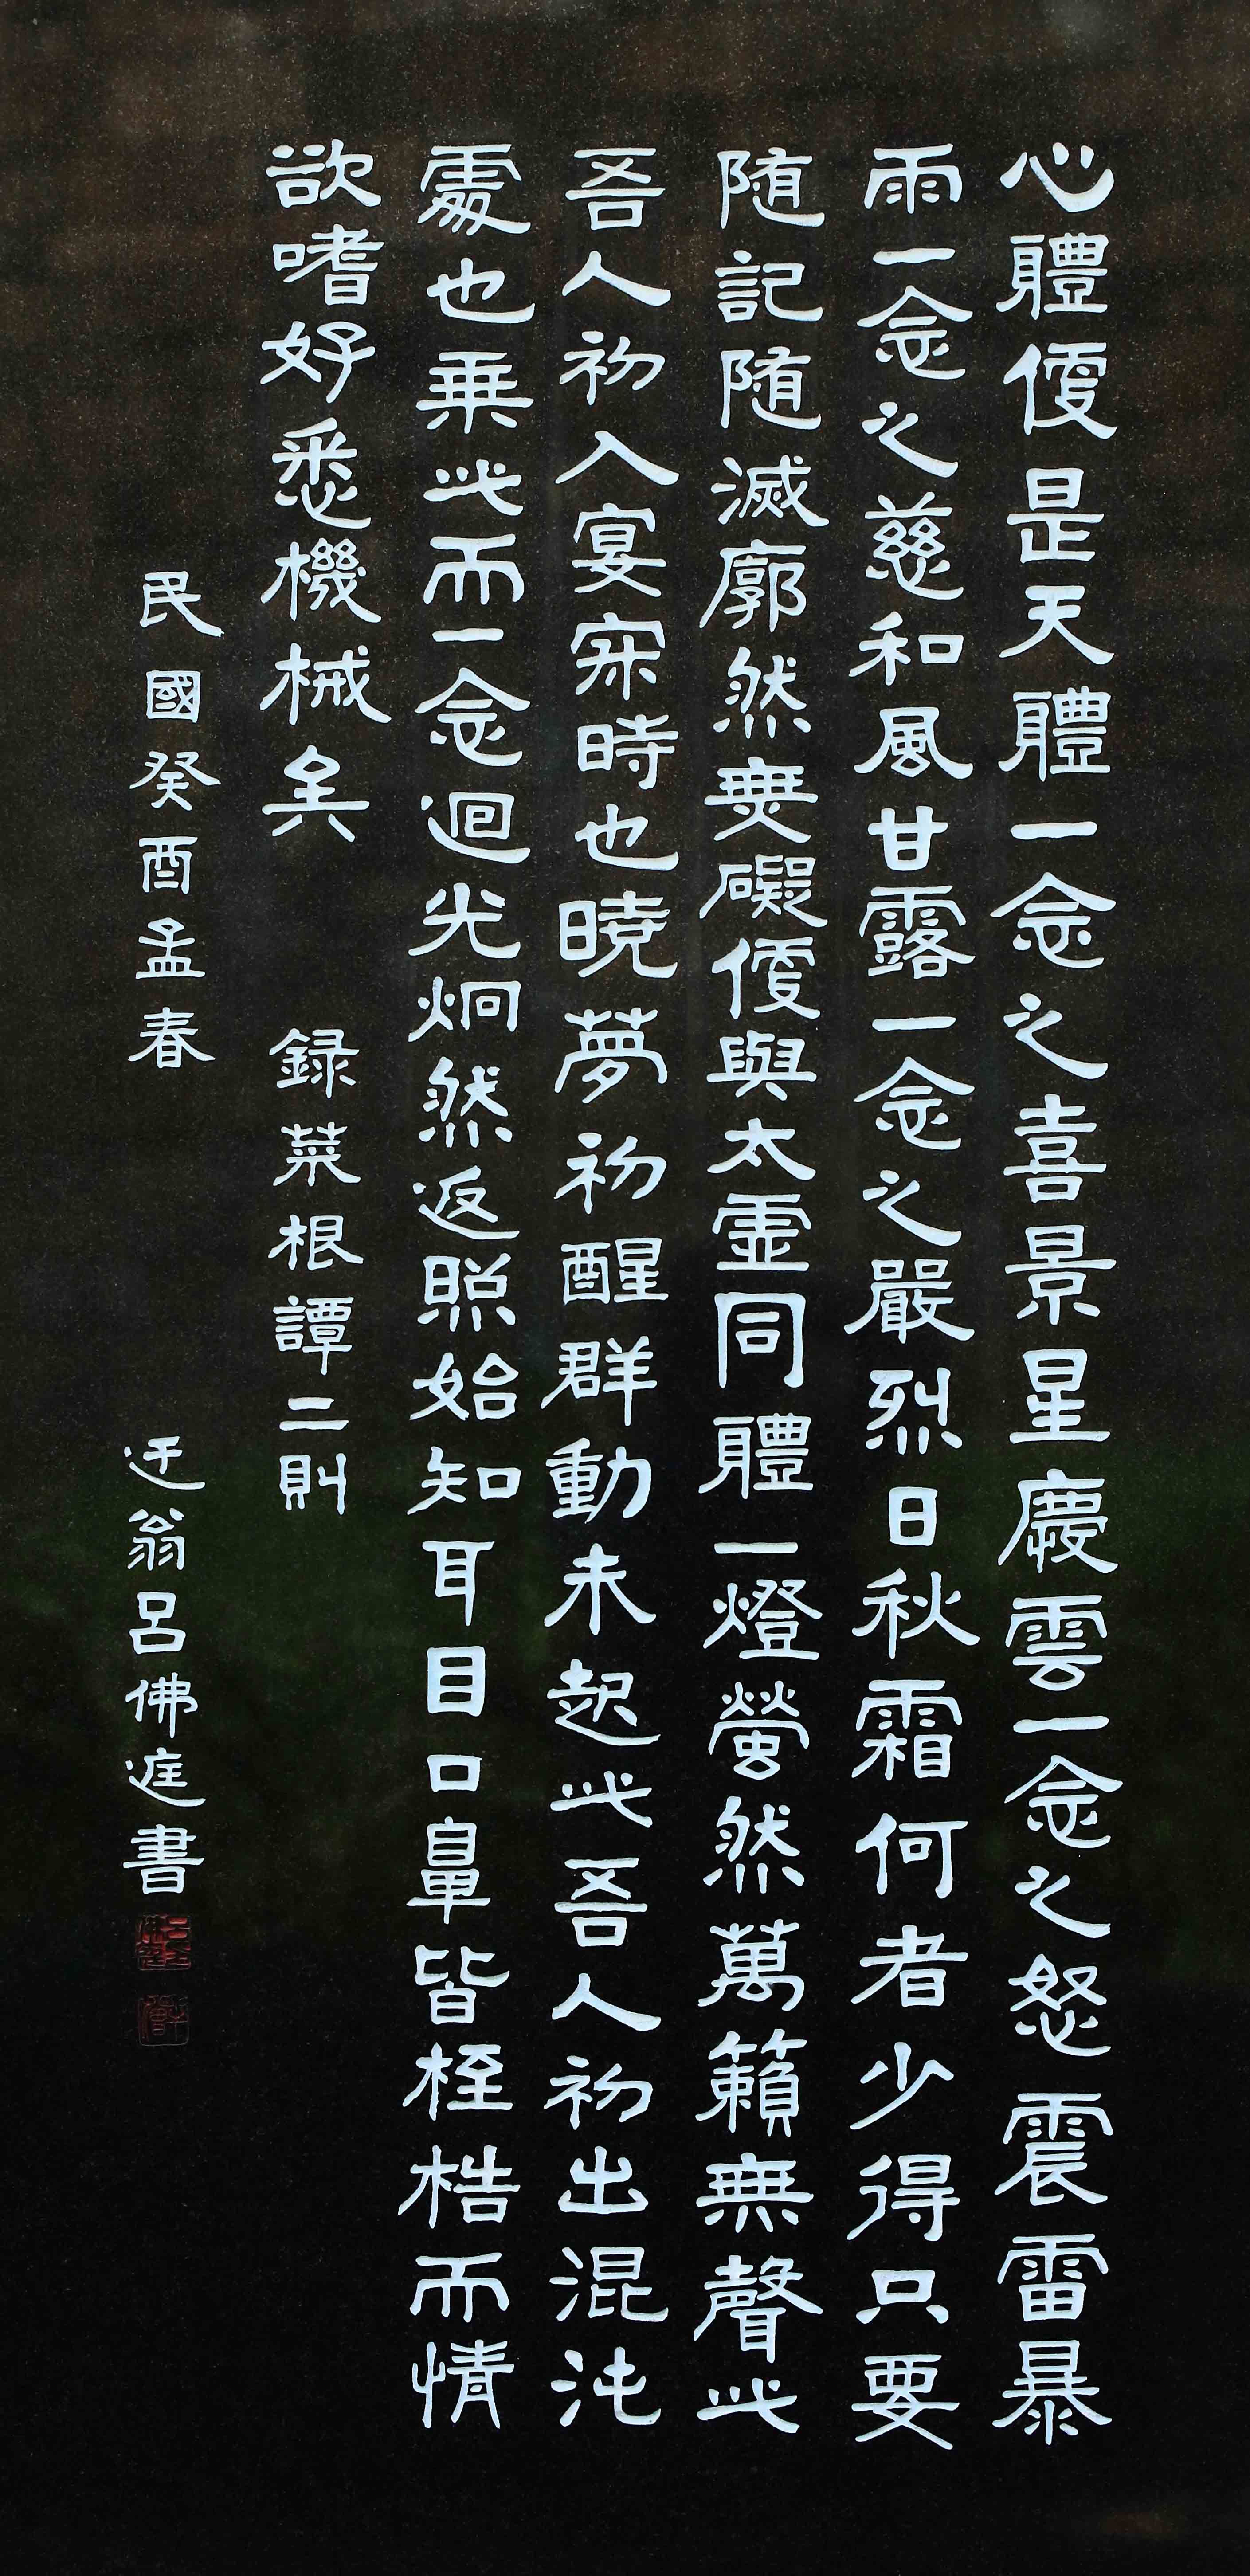 心體便是天體一念之喜景星慶雲一念之怒震雷暴
雨一念之慈和風甘露一念之嚴烈日秋霜何者少得只要
随記随滅廓然無礙便與太虛同體一燈螢然萬籟無聲此
吾人初入宴寂時也曉夢初醒群動未起此吾人初出混沌
處也乘此而一念迴光炯然返照始知耳目口鼻皆桎梏而情
欲嗜好悉機械矣 録菜根譚二則
民國癸酉孟春 迂翁呂佛庭書